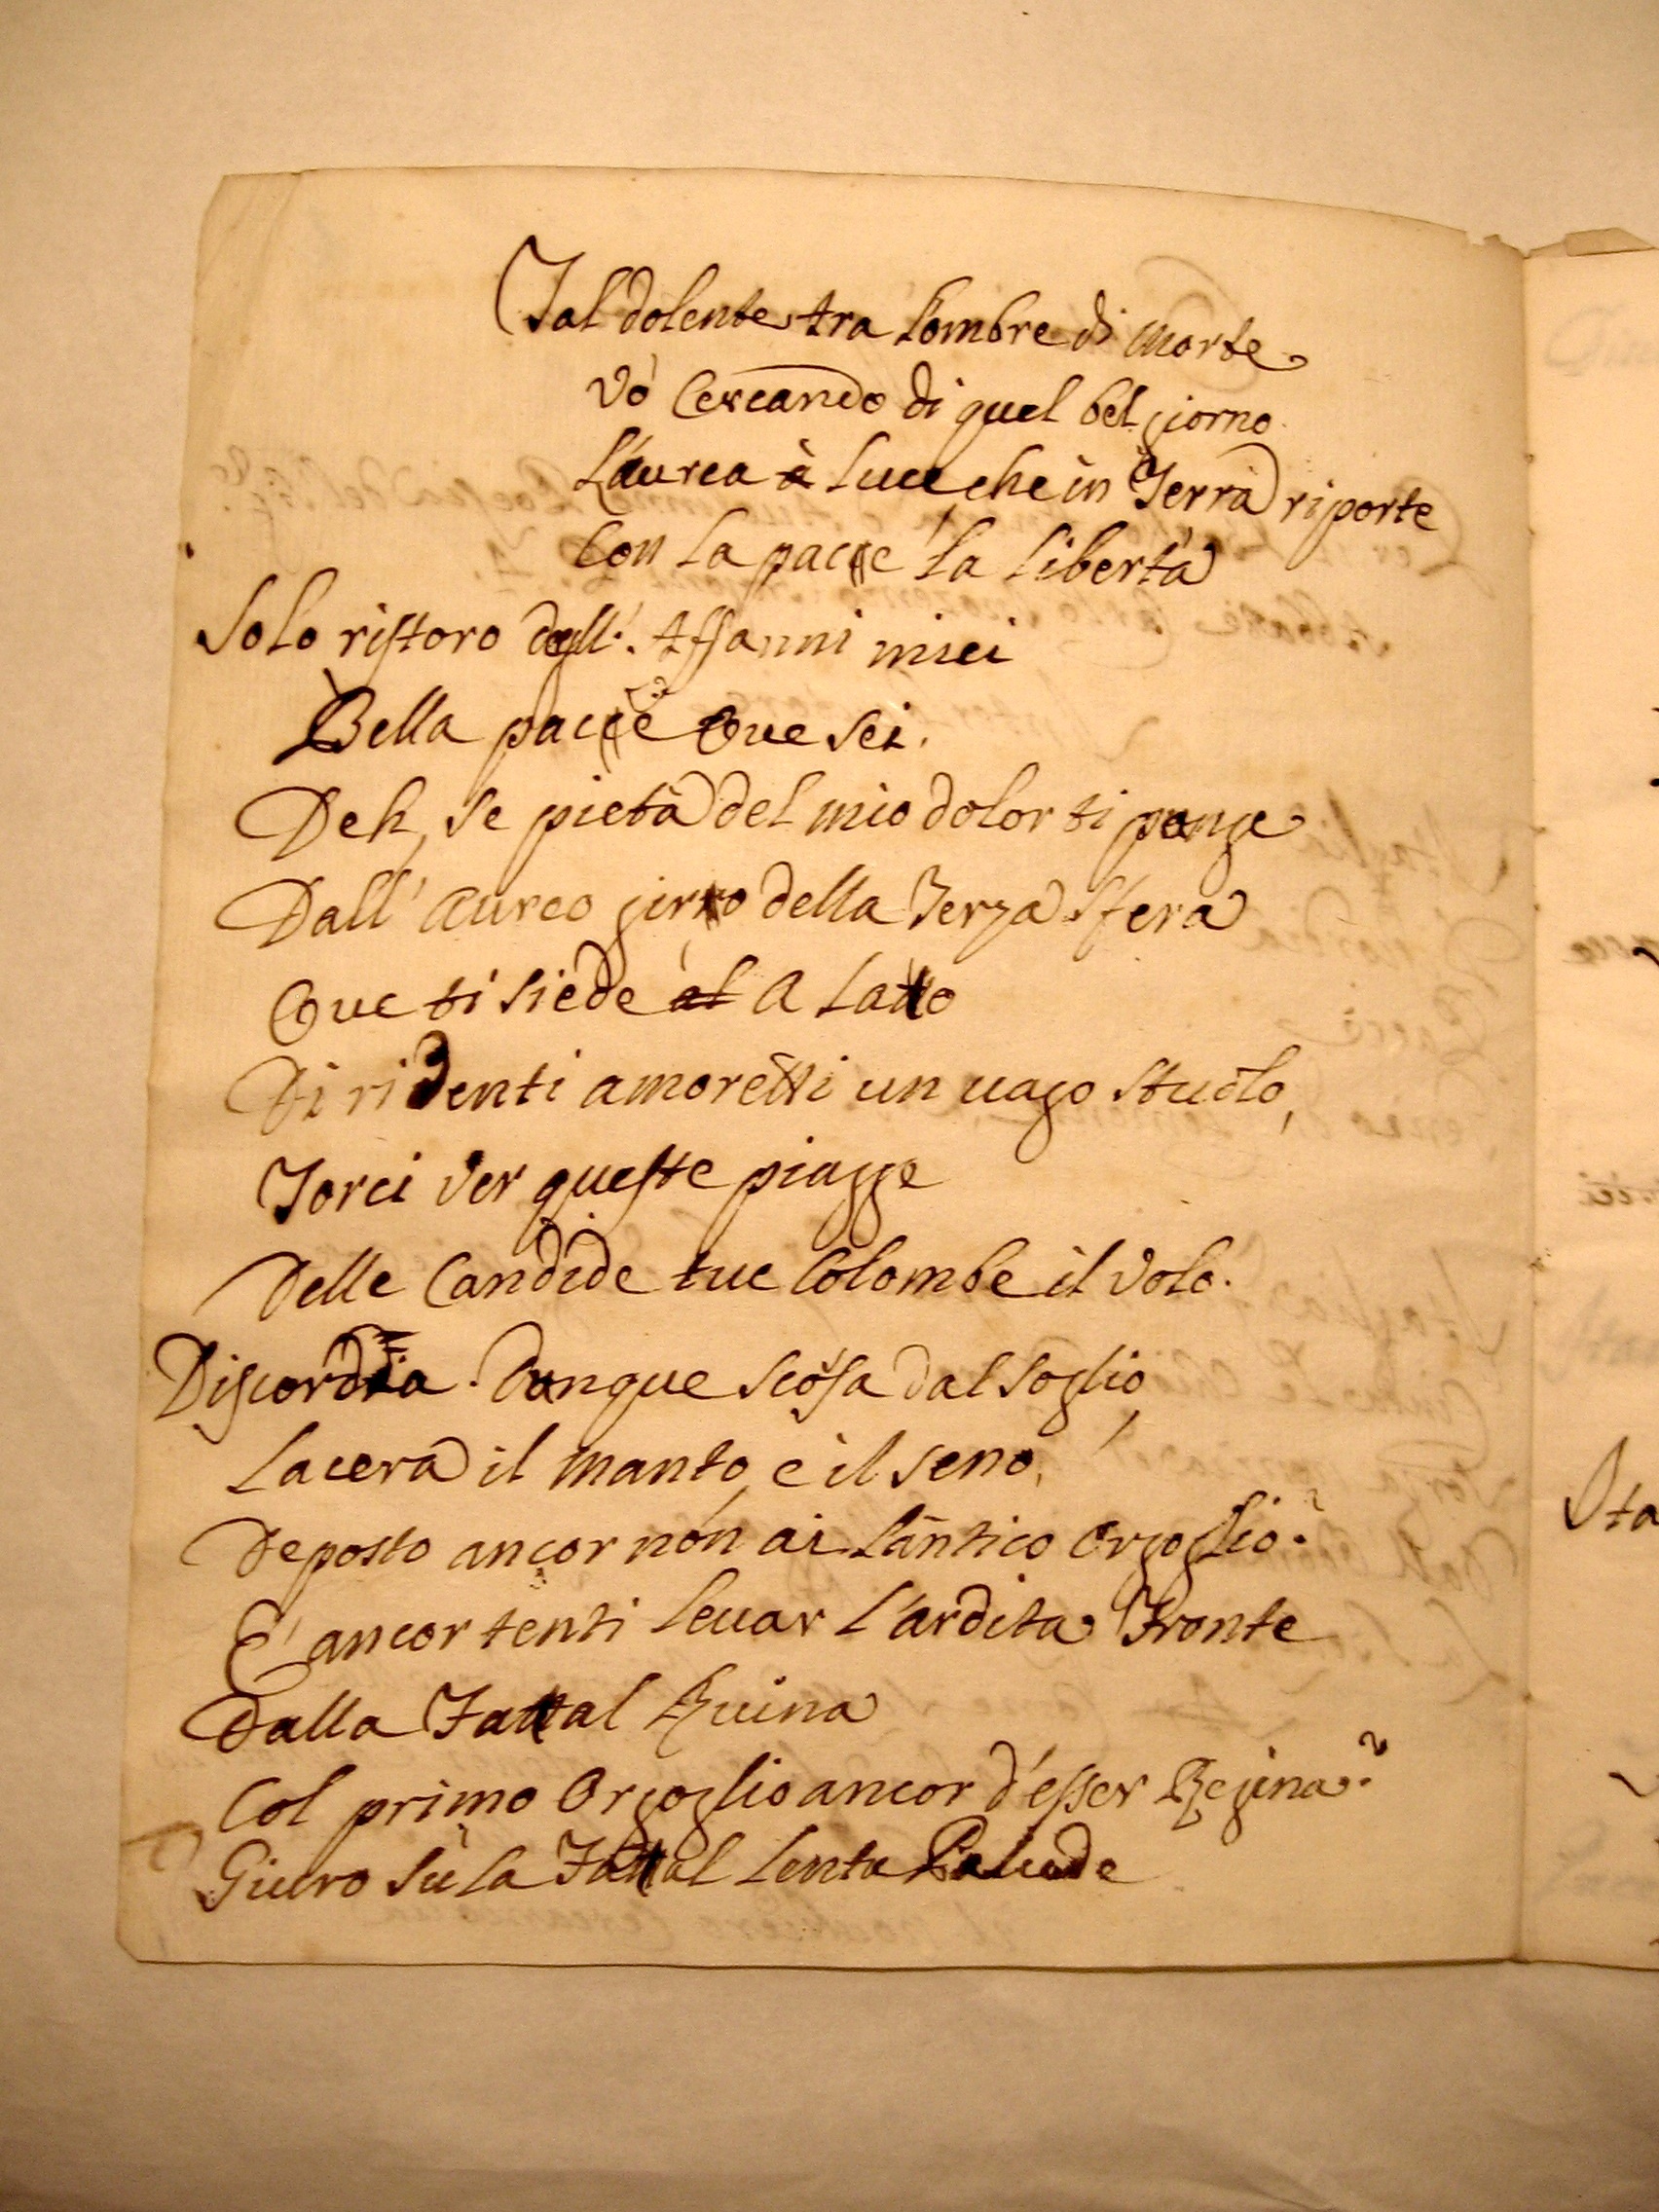 Tal dolente tra l'ombre di morte
vò Cercando di quel bel giorno
L'aurea à luce, che in Terra riporte
Con la pace la libertà
Solo ristoro degl'. Affanni miei
Bella pace Oue sei.
Deh, se pietà del mio dolor ti punge
Dall' aureo giro della Terza sfera
Oue ti siede al A lato
Di ridenti amoretti un uago stuolo,
Torci ver queste piagge
Delle Candide tue Colombe il volo.
Discordia. Dunque scossa dal soglio,
Lacera il manto, e il seno,
Deposto ancor non ai l'antico Orgoglio?
E' ancor tenti leuar l'ardita Fronte
Dalla Fatal Ruina
Col primo Orgoglio ancor d'esser Regina?
Giuro sù la Fatal lenta Palude
Sta